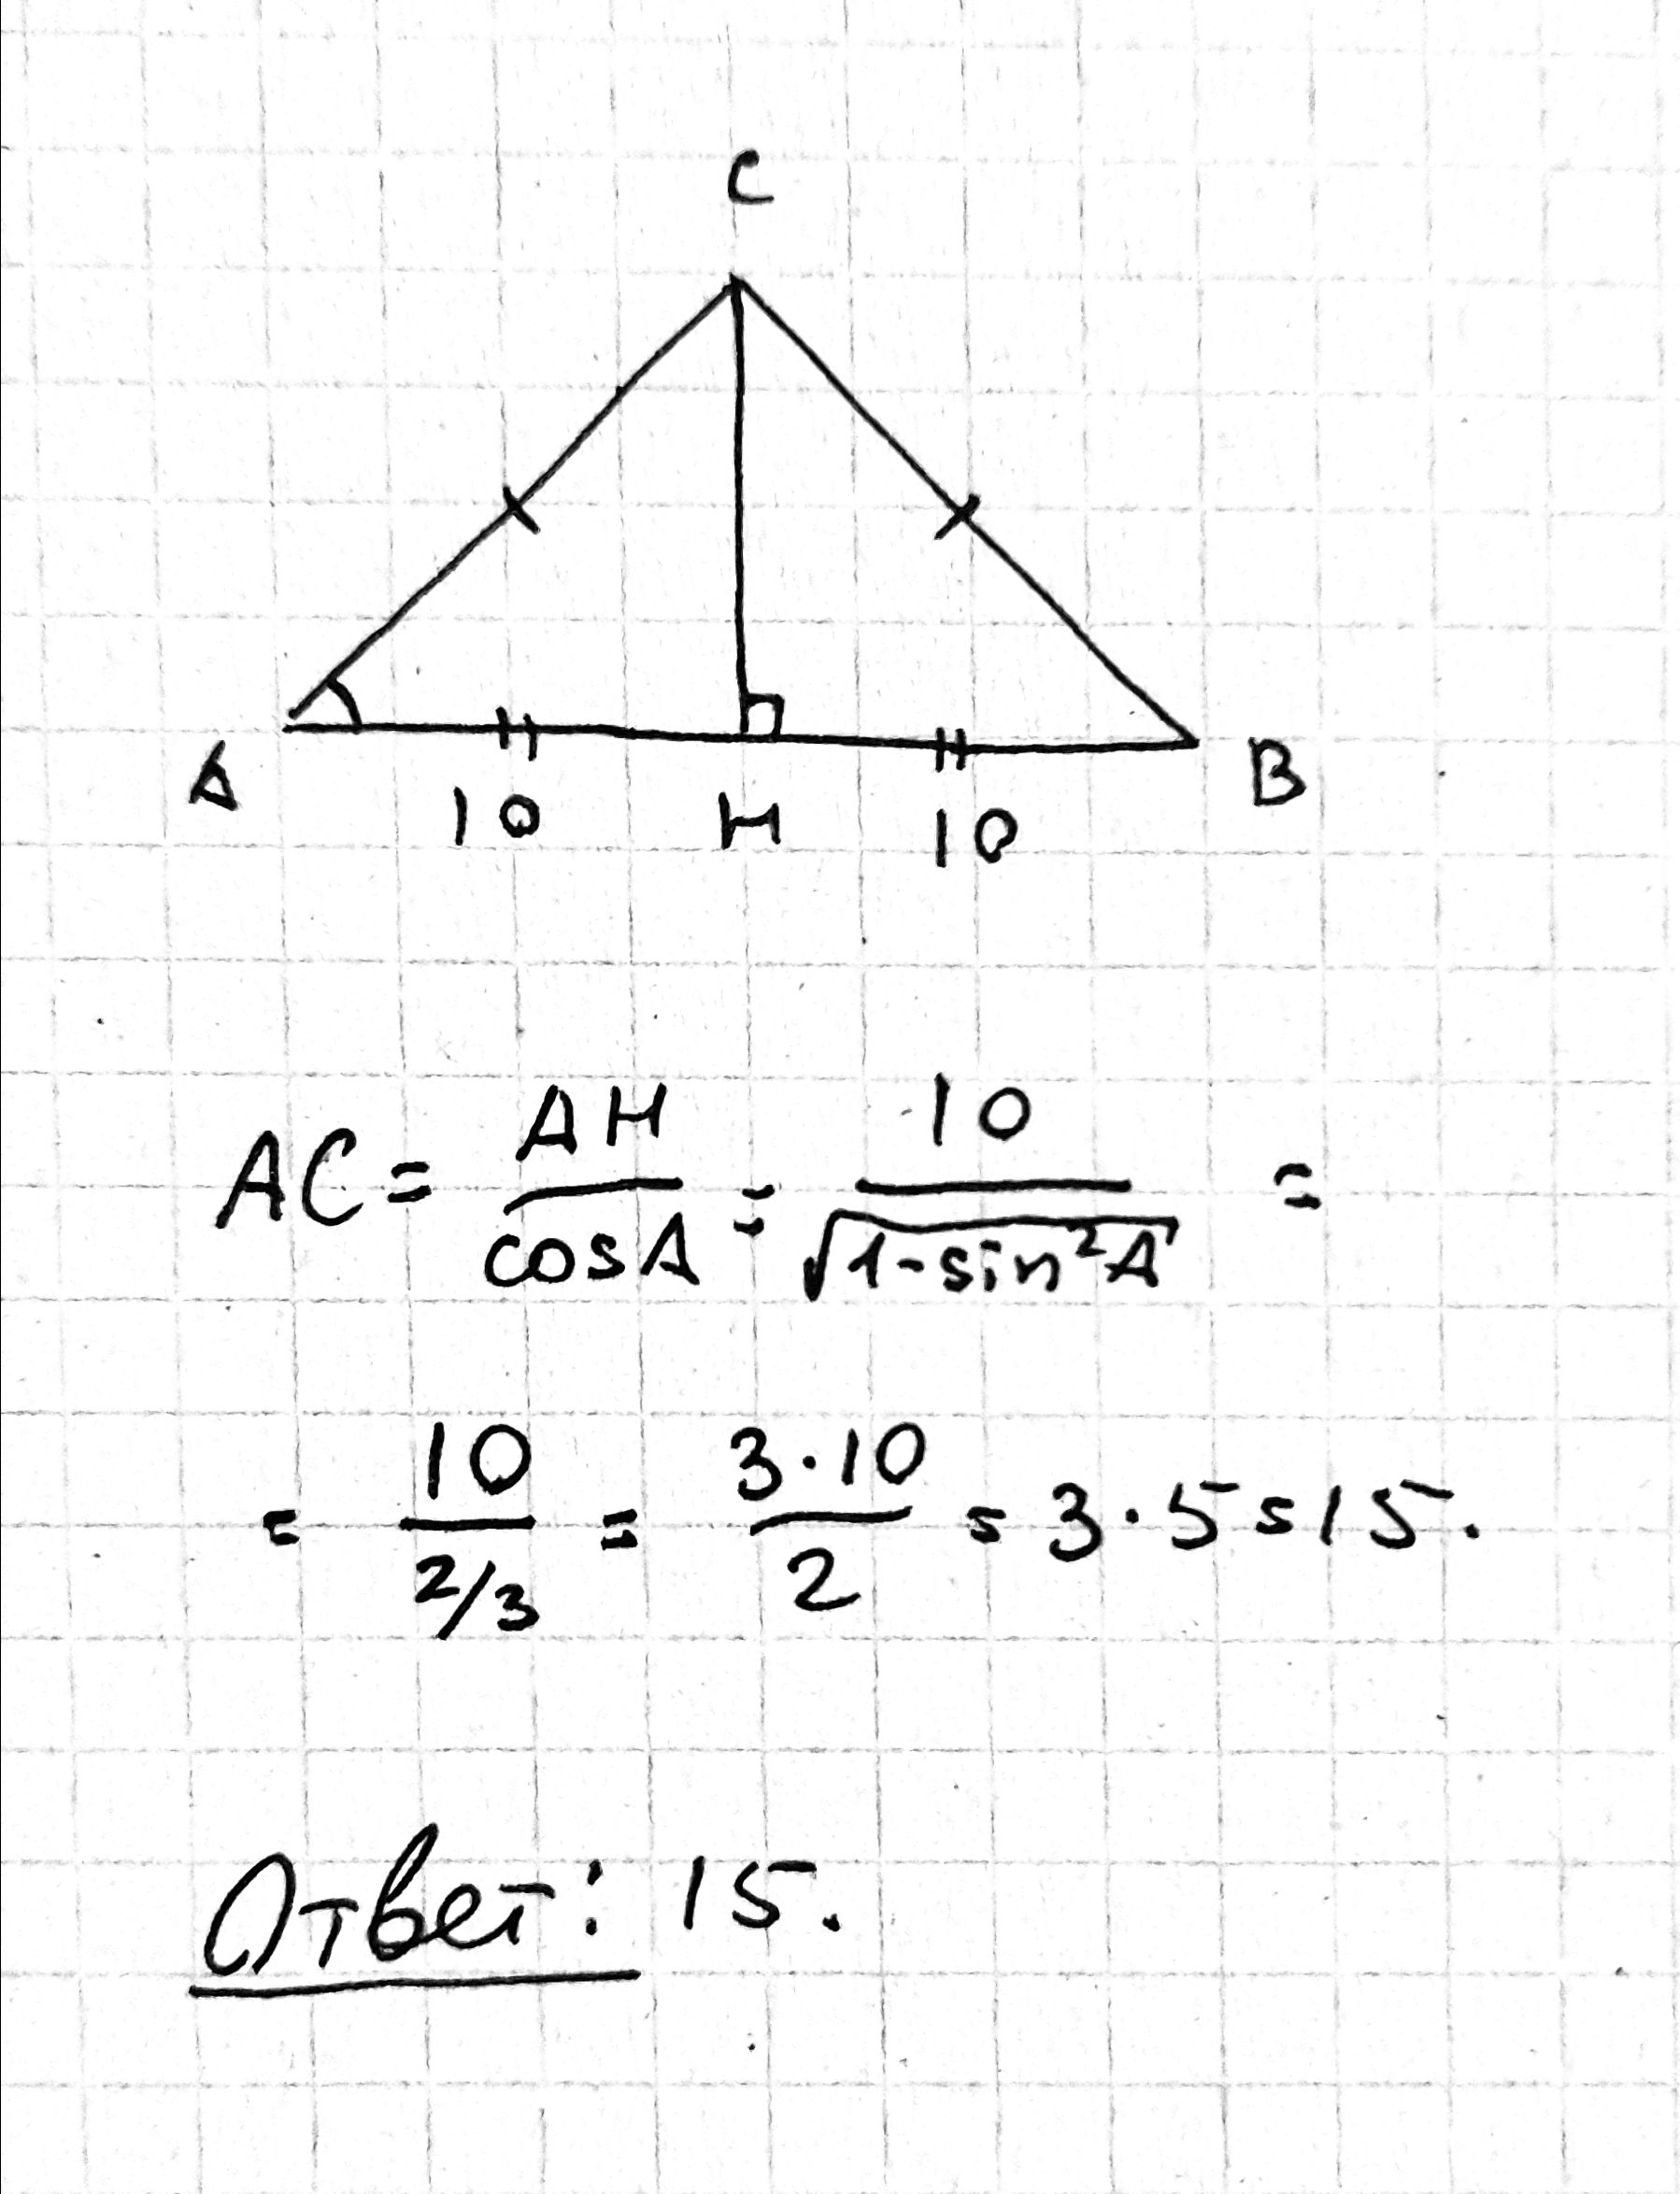 C
A 10 H 10 B
AC = AH/cosA = 10/√(1-sin²A) =
= 10/(2/3) = 3·10/2 = 3·5 = 15.
Ответ: 15.